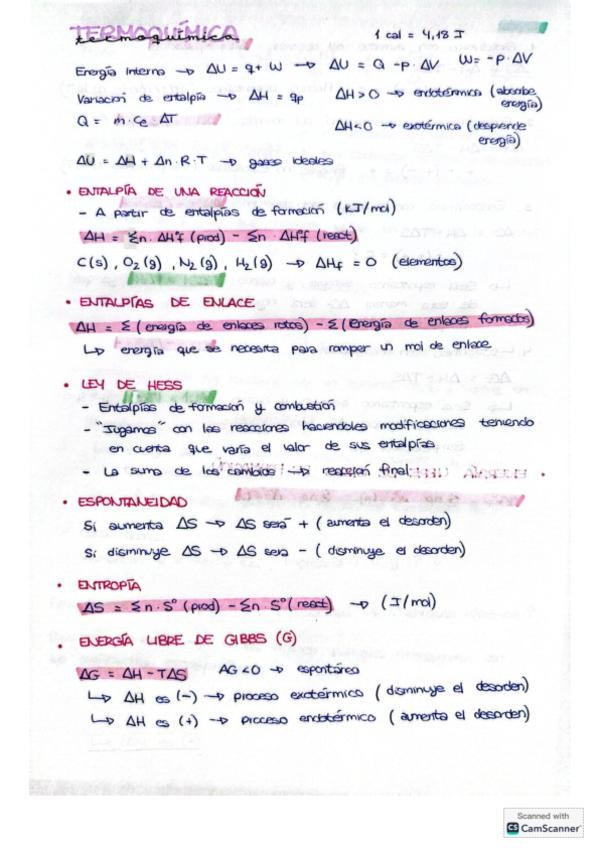 TERMOQUÍMICA
termoquímica
1 cal = 4,18 J
Energía Interna → ΔU = q + W → ΔU = Q - p · ΔV W = - P · ΔV
Variación de entalpía → ΔH = qp ΔH > 0 → endotérmica (absorbe energía)
Q = m · Ce ΔT
ΔH < 0 → exotérmica (desprende energía)
ΔU = ΔH + Δn · R · T → gases ideales
• ENTALPÍA DE UNA REACCIÓN
- A partir de entalpías de formación (KJ/mol)
ΔH = Σn · ΔH°f (prod) - Σn · ΔH°f (react)
C(s), O₂(g), N₂(g), H₂(g) → ΔHf = 0 (elementos)
• ENTALPÍAS DE ENLACE
ΔH = Σ (energía de enlaces rotos) - Σ (Energía de enlaces formados)
↳ energía que se necesita para romper un mol de enlace
• LEY DE HESS
- Entalpías de formación y combustión
- "Jugamos" con las reacciones haciendoles modificaciones teniendo
en cuenta que varía el valor de sus entalpías
- La suma de los cambios → reacción final
• ESPONTANEIDAD
Si aumenta ΔS → ΔS será + (aumenta el desorden)
Si disminuye ΔS → ΔS sera - (disminuye el desorden)
• ENTROPÍA
ΔS = Σn · S° (prod) - Σn · S° (react) → (J/mol)
• ENERGÍA LIBRE DE GIBBS (G)
ΔG = ΔH - TΔS ΔG < 0 → espontánea
↳ ΔH es (-) → proceso exotérmico (disminuye el desorden)
↳ ΔH es (+) → proceso endotérmico (aumenta el desorden)
Scanned with
CS CamScanner